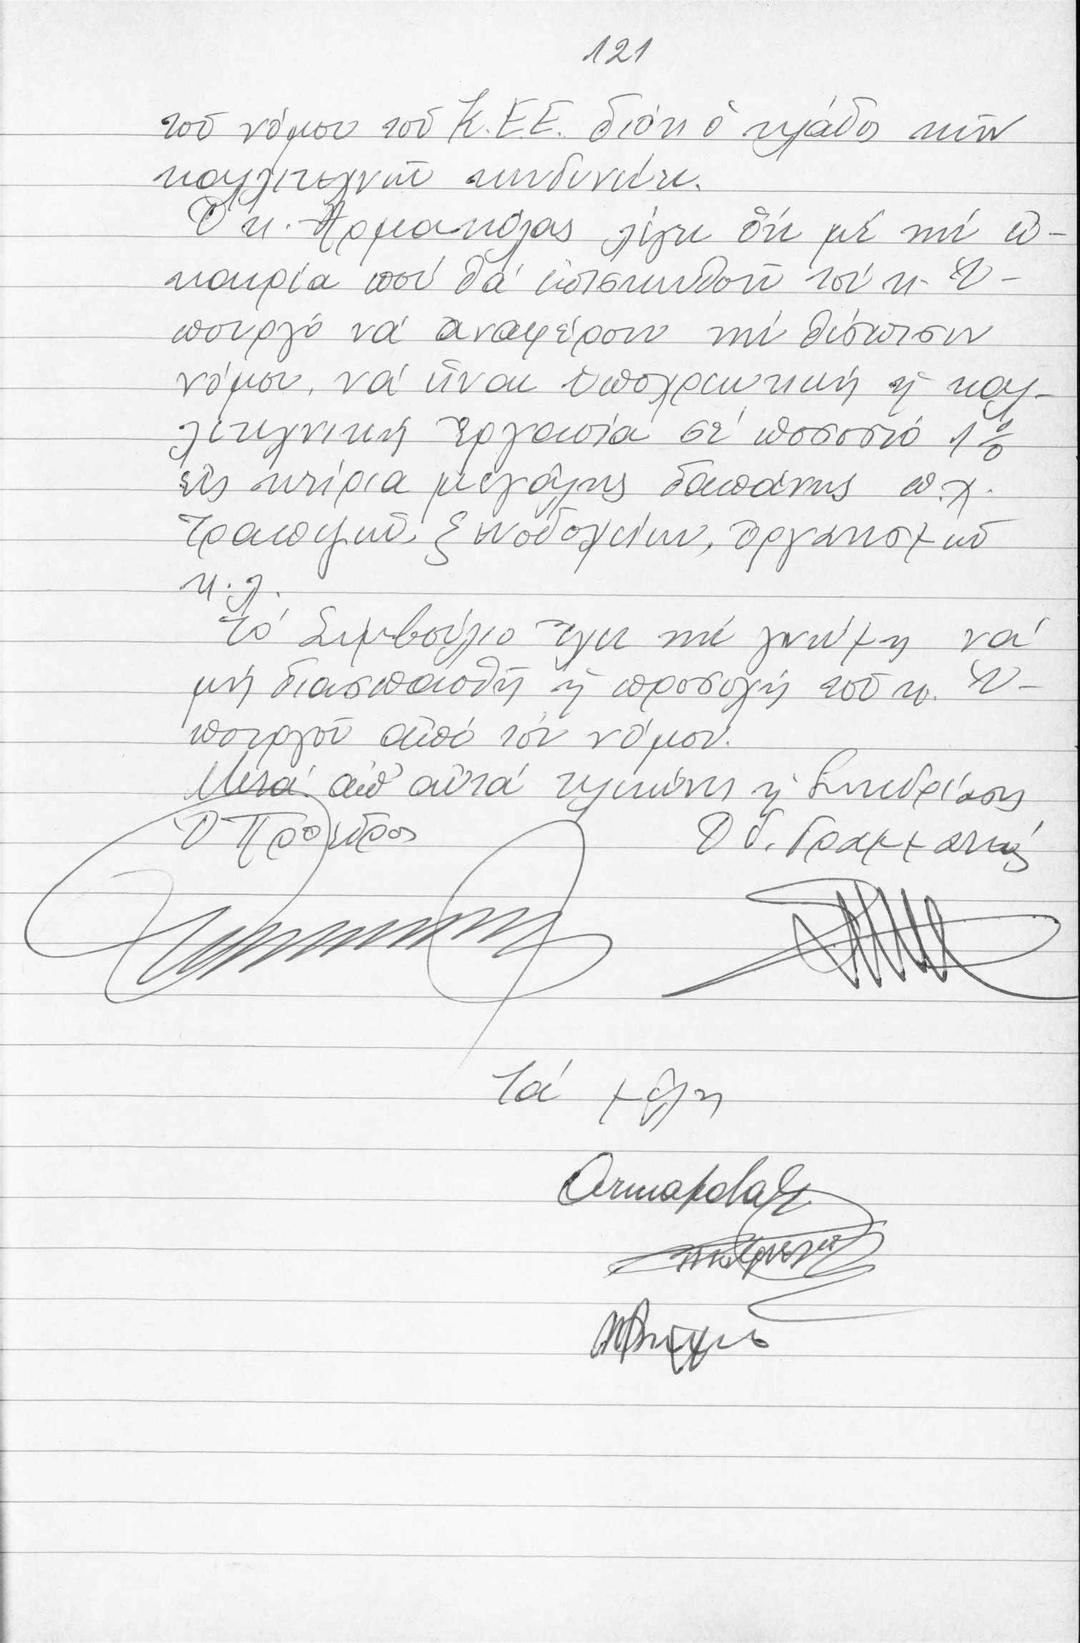 121
τοῦ νόμου τοῦ Κ.Ε.Ε. διότι ὁ κλάδος τῶν
καλλιτεχνῶν κινδυνεύει.
Ὁ κ. Ἀρμακόλας λέγει ὅτι μέ τήν εὐ-
καιρία πού θά ἐπισκεφθοῦν τόν κ. Ὑ-
πουργό νά ἀναφέρουν τήν θέσπισιν
νόμου, νά εἶναι ὑποχρεωτική ἡ καλ-
λιτεχνική ἐργασία σέ ποσοστό 1%
εἰς κτίρια μεγάλης δαπάνης π.χ.
Τραπεζῶν, ξενοδοχείων, Ὀργανισμῶν
κ.λ.
Τό Συμβούλιο ἔχει τήν γνώμη νά
μή διασπασθῆ ἡ προσοχή τοῦ κ. Ὑ-
πουργοῦ ἀπό τόν νόμον.
Μετά ἀπ' αὐτά τελειώνει ἡ Συνεδρίασις
Ὁ Πρόεδρος Ὁ Γ. Γραμματεύς
Τά μέλη